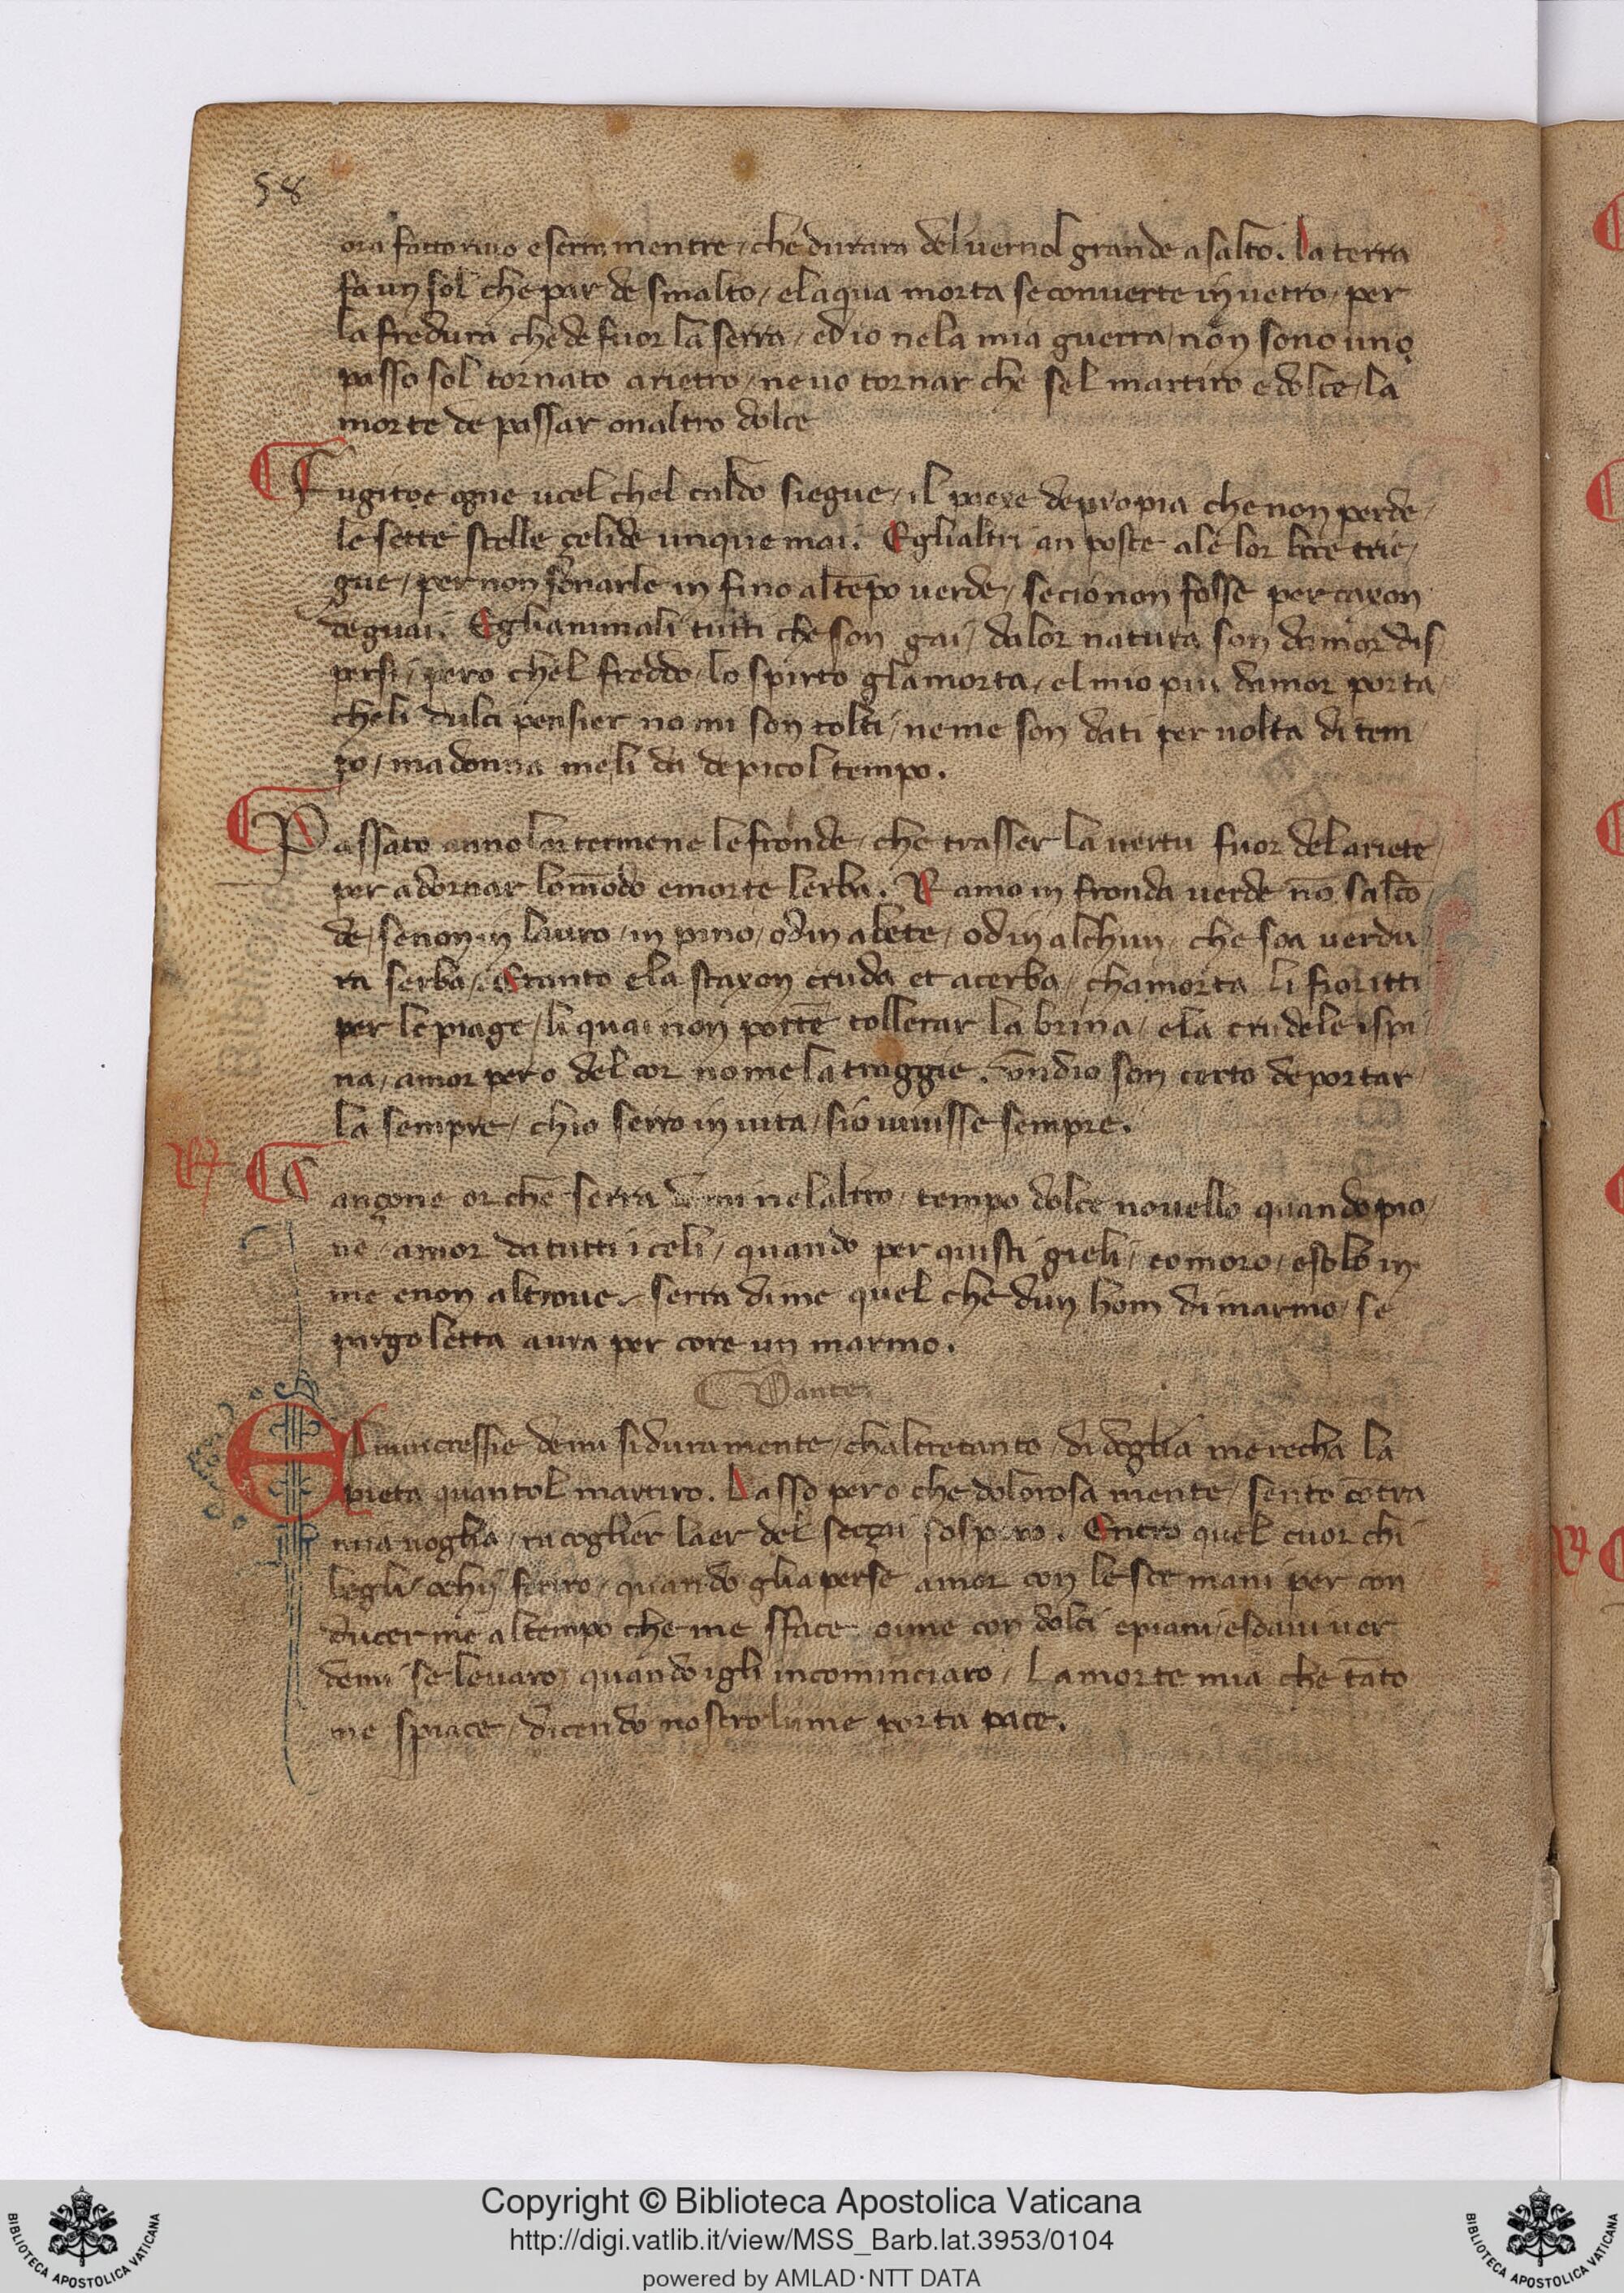 58
ora fatto rivo e serra mentre / che durara del vernol grande asalto. La terra
fa un sol che par de smalto / elaqua morta se converte in vetro / per
la fredura che de fuor la serra / ed io nela mia guerra / non sono uno
passo sol tornato arietro / ne vo tornar che sel martiro e dolce / la
morte de passar onaltro dolce
Fugitoe ogne ucel chel caldo siegue / il paexe depropia che non perde /
le sette stelle gelide unque mai. Eglialtri an poste ale lor trie /
gue / per non sonarle in fino altēpo verde / se cio non fosse per caxon
de guai. Eglianimali tutti che son gai / da lor natura son damor dis
persi / pero chel freddo lo spirto glamorta / el mio piu damor porta /
cheli dulci pensier no mi son tolti / ne me son dati per volta di tem
po / ma donna meli da de picol tempo.
Passato anno lur termene le fronde / che trasser la vertu fuor delariete /
per adornar lo mōdo e morte lerba. Ramo in fronda verde nō sascō
de / senon in lauro / in pino / od in abete / od in alchun che soa verdu
ra serba. E tanto e la staxon cruda et acerba / chamorta li fioritti
per le piage / li quai non pottē tollerar la brina / e la crudele ispi
na / amor pero del cor nome la traggie. Ondio son certo de portar
la sempre / chio serro in vita / sio vivisse sempre.
Cançone or che serra di mi nelaltro / tempo dolce novello quando pio
ve / amor da tutti i celi / quando per quisti gieli / eo moro / e solo in
me e non altrove / serra di me quel che dun hom di marmo / se
pargoletta avra per core un marmo.
Dante
E mincressie demi si duramente / chaltretanto / di doglia me recha la
pieta quantol martiro. Lasso pero che dolorosa mente / sento cōtra
mia voglia / racoglier laer del seççai sospiro. Entro quel cuor chi
begli ochij feriro / quando gliaperse amor con le soe mani per con
ducerme altempo che me sface oime con dolci e piani / e soavi ver
demi se levaro / quando igli incominciaro / La morte mia che tāto
me spiace / dicendo nostro lume porta pace.
Copyright © Biblioteca Apostolica Vaticana
http://digi.vatlib.it/view/MSS_Barb.lat.3953/0104
powered by AMLAD·NTT DATA
BIBLIOTECA APOSTOLICA VATICANA
BIBLIOTECA APOSTOLICA VATICANA